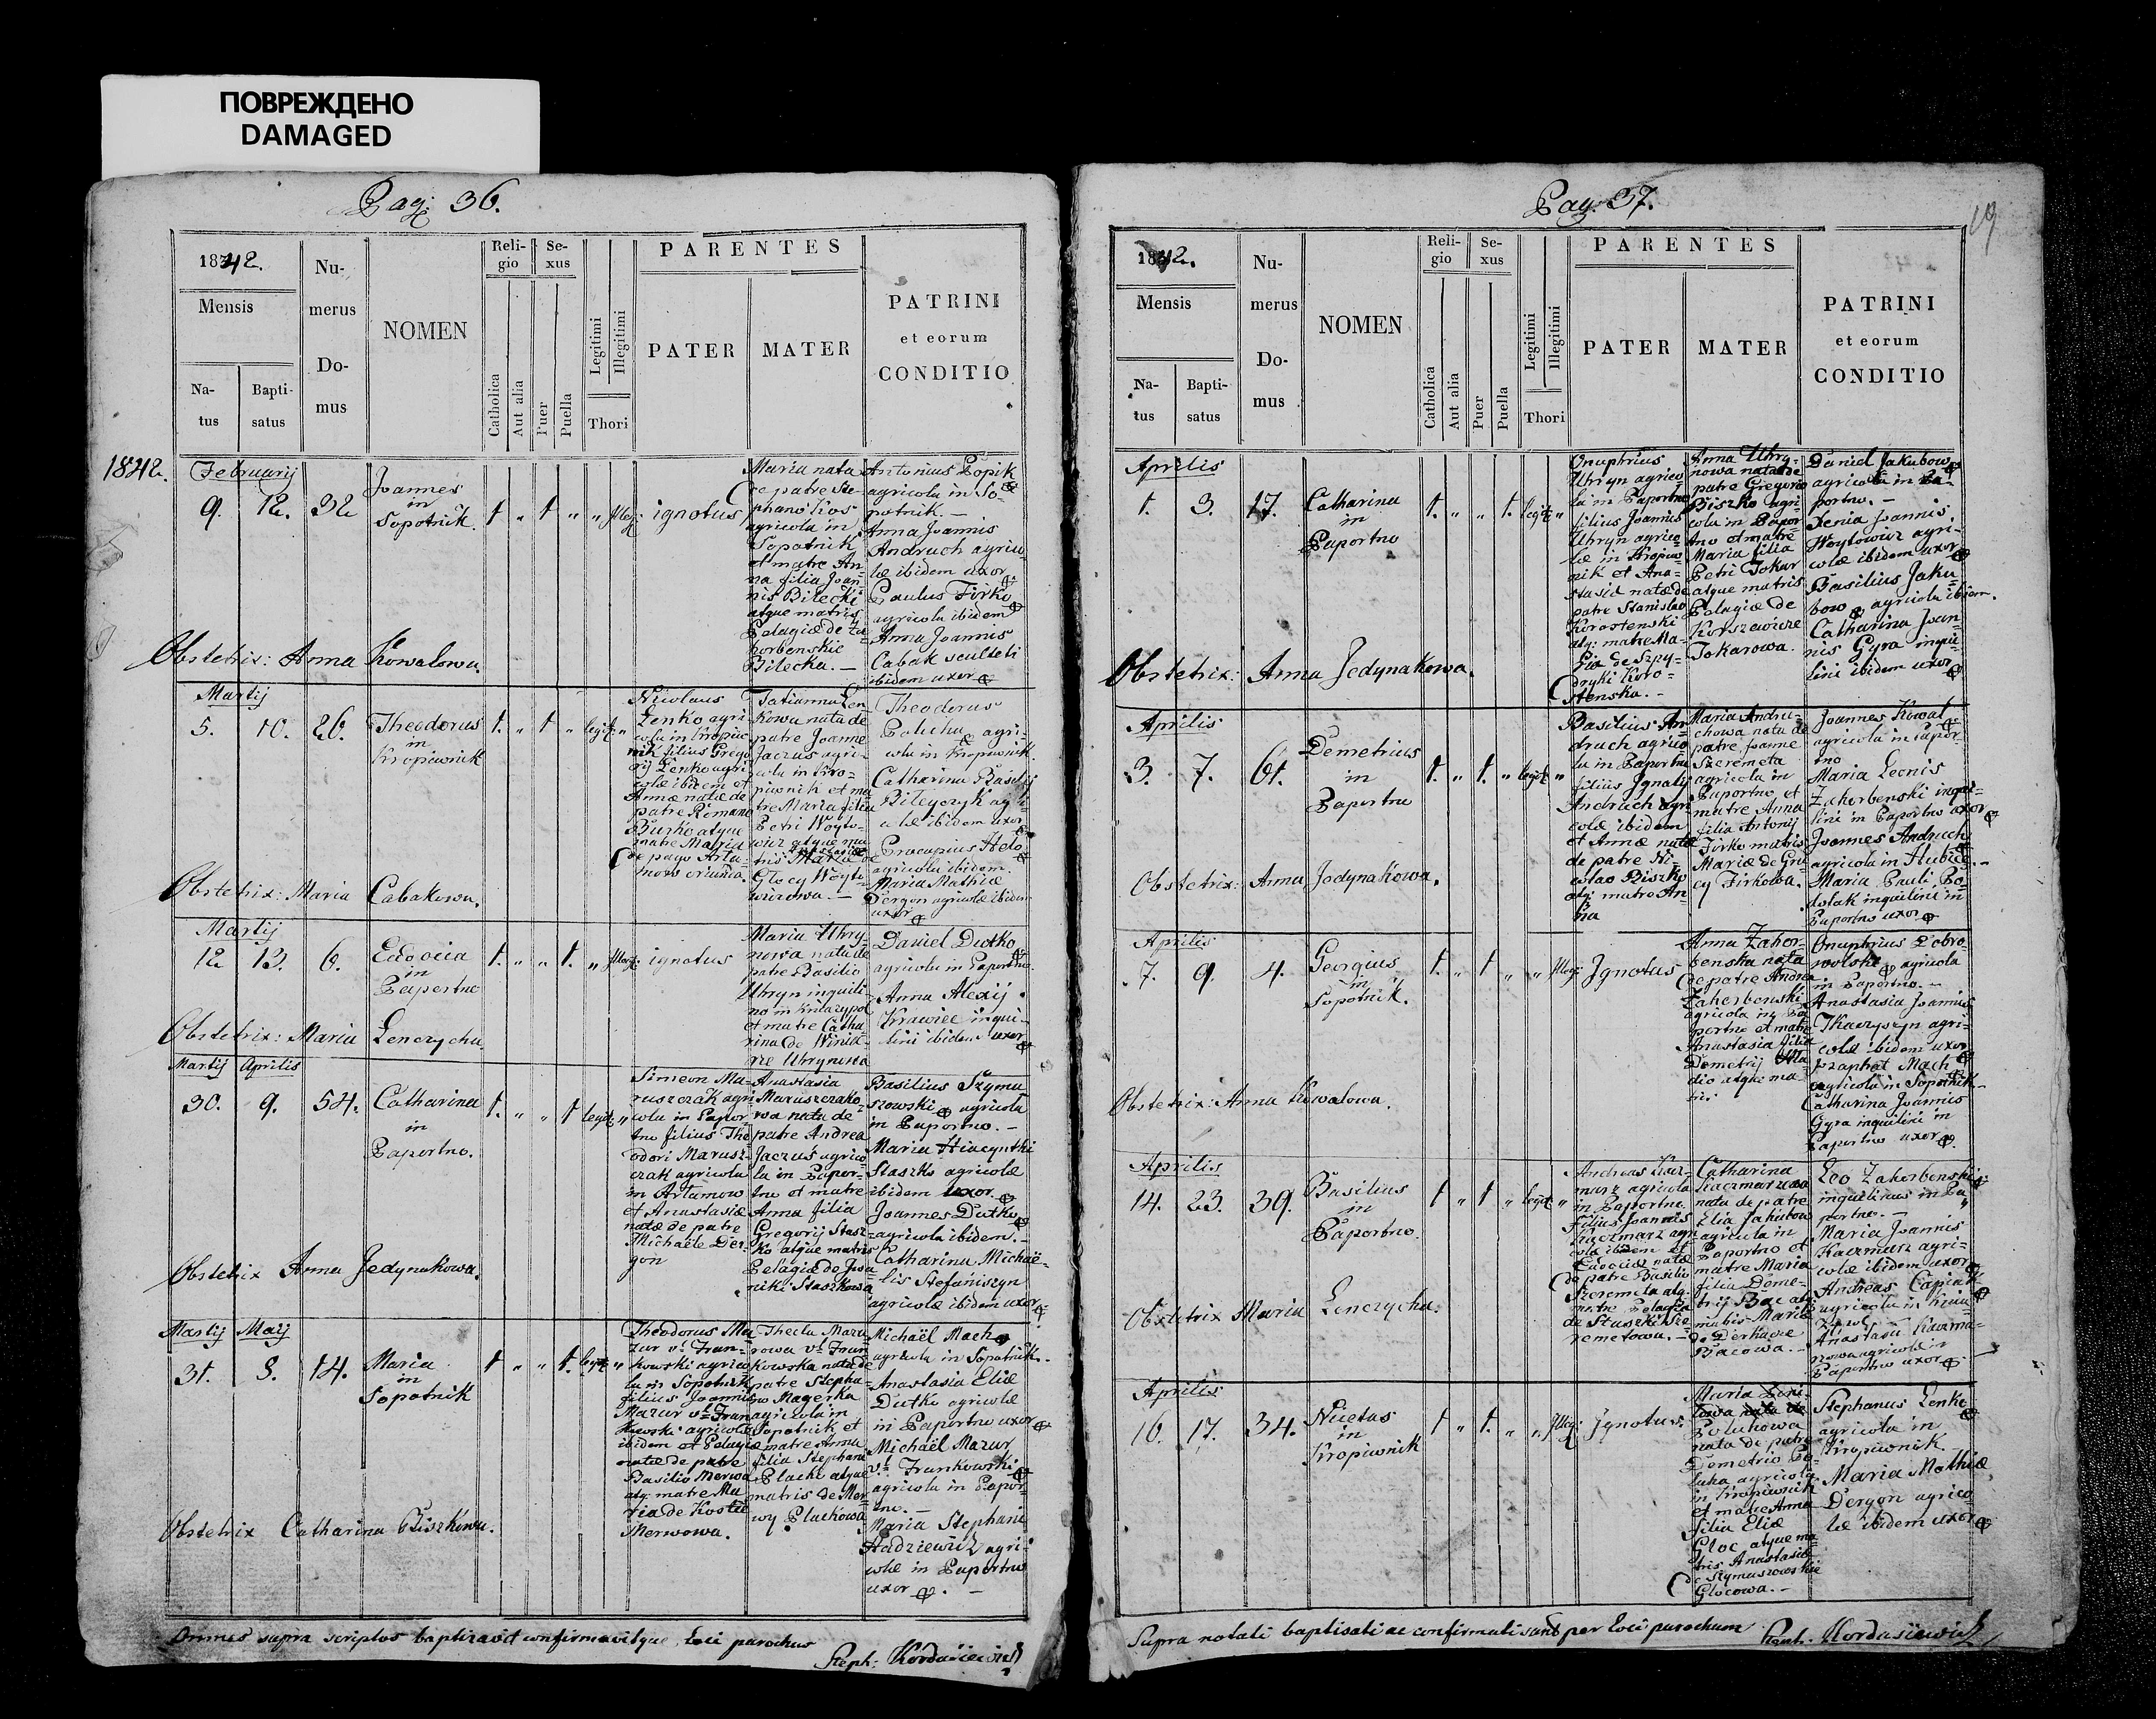 ПОВРЕЖДЕНО
DAMAGED
Pag: 36.
1842.
Mensis
Na-
tus
Bapti-
satus
Nu-
merus
Do-
mus
NOMEN
Reli-
gio
Catholica
Aut alia
Se-
xus
Puer
Puella
Legitimi
Illegitimi
Thori
PARENTES
PATER
MATER
PATRINI
et eorum
CONDITIO
1842.
Februarij
9. 12. 32
Joannes
in
Sopotnik.
† " † " " illeg:
ignotus
Maria nata
de patre Ste-
phano
agricola in
Sopotnik
et matre An-
na filia Joan-
nis Bilecki
atque matris
Pelagiæ de Za-
horbenskie
Bilecka. —
Antonius Popik
agricola in So-
potnik. —
Anna Joannis
Andruch agrico-
læ ibidem uxor
Paulus Firko
agricola ibidem
Anna Joannis
Cabak sculteti
ibidem uxor
Obstetrix: Anna Kowalowa.
Martij
5. 10. 26.
Theodorus
in
Kropiwnik
†. " † " legit: "
Nicolaus
Lenko agri-
cola in Kropiw
nik filius Grego
rij Lenko agri
colæ ibidem et
Annæ natæ de
patre Romano
Burko atque
matre Maria
de pago Arta-
mow oriunda.
Tatianna Len
kowa nata de
patre Joanne
Jaczus agri-
cola in Kro-
piwnik et ma
tre Maria filia
Petri Woyto-
wicz atque ma
tris
Glocy Woyto-
wiczowa. —
Theodorus
Poluha agri-
cola in Kropiwnik.
Catharina Basilij
Bileyczyk agri-
colæ ibidem uxor
Procopius Helo
agricola ibidem.
Maria Mathiæ
Dergon agricolæ ibidem
uxor
Obstetrix: Maria Cabakowa.
Martij
12 13. 6.
Eudocia
in
Paportno
†. " " †. " illeg:
ignotus
Maria Uhry-
nowa nata de
patre Basilio
Uhryn inquili
no in Kniazypol
et matre Catha
rina de Winia-
rze Uhrynowa
Daniel Dutko
agricola in Paportno.
Anna Alexij
Krawiec inqui-
lini ibidem uxor
Obstetrix: Maria Lenczycha.
Martij Aprilis
30. 9. 54.
Catharina
in
Paportno.
†. " " † legit: "
Simeon Ma-
ruszczak agri
cola in Papor
tno filius The
odori Marusz-
czak agricolæ
in Artamow
et Anastasiæ
natæ de patre
Michaële Der-
gon
Anastasia
Maruszczako-
wa nata de
patre Andrea
Jaczus agrico
la in Papor-
tno et matre
Anna filia
Gregorij Stasz-
ko atque matris
Pelagiæ de Jwa
niki Staszkowa
Basilius Szyma
szowski agricola
in Paportno. —
Maria Hiacynthi
Staszko agricolæ
ibidem uxor
Joannes Dutko
agricola ibidem. —
Catharina Michaë-
lis Stefaniszyn
agricolæ ibidem uxor
Obstetrix Anna Jedynakowa.
Martij Maij
31. 8. 14.
Maria
in
Sopotnik
† " " †. legit: "
Theodorus Ma
zur vl: Fran-
kowski agrico
la in Sopotnik
filius Joannis
Mazur vl: Fran
kowski agricolæ
ibidem et Pelagiæ
natæ de patre
Basilio Merwa
atq: matre Ma
ria de Kostec
Merwowa.
Thecla Mazu-
rowa vl: Fran
kowska nata de
patre Stepha-
no Magerka
agricola in
Sopotnik et
matre Anna
filia Stephani
Placko atque
matris de Mer
wy Plackowa
Michaël Mach
agricola in Sopotnik. —
Anastasia Eliæ
Dutko agricolæ
in Paportno uxor
Michaël Mazur
vl: Frankowski
agricola in Papor-
tno. —
Maria Stephani
Hadziewicz agri-
colæ in Paportno
uxor. —
Obstetrix Catharina Biszkowa.
Omnes supra scriptos baptizavit confirmavitque Loci parochus
Steph: Kordasiewicz
Pag. 37.
19
1842.
Mensis
Na-
tus
Bapti-
satus
Nu-
merus
Do-
mus
NOMEN
Reli-
gio
Catholica
Aut alia
Se-
xus
Puer
Puella
Legitimi
Illegitimi
Thori
PARENTES
PATER
MATER
PATRINI
et eorum
CONDITIO
Aprilis
1. 3. 17.
Catharina
in
Paportno
†. " " †. legit: "
Onuphrius
Uhryn agrico
la in Paportno
filius Joannis
Uhryn agrico-
læ in Kropiw
nik et Ana-
stasiæ natæ de
patre Stanislao
Korostenski
atq: matre Ma-
ria de Szpy-
dryki Koro-
stenska. —
Anna Uhry-
nowa nata de
patre Gregorio
Biszko agri-
cola in Papor
tno et matre
Maria filia
Petri Tokar
atque matris
Pelagiæ de
Korszewicze
Tokarowa.
Daniel Jakubow
agricola in Pa-
portno. —
Xenia Joannis
Woytowicz agri-
colæ ibidem uxor
Basilius Jaku-
bow agricola ibidem.
Catharina Joan-
nis Gyra inqui-
lini ibidem uxor
Obstetrix: Anna Jedynakowa.
Aprilis
3. 7. 61.
Demetrius
in
Paportno
†. " †. " legit: "
Basilius An
druch agrico
la in Paportno
filius Jgnatij
Andruch agri
colæ ibidem
et Annæ natæ
de patre Ni-
colao Biszko
atq: matre An-
na
Maria Andru-
chowa nata de
patre Joanne
Szeremeta
agricola in
Paportno et
matre Anna
filia Antonij
Firko matris
Mariæ de Gru
cy Firkowa.
Joannes Kowal
agricola in Papor-
tno
Maria Leonis
Zahorbenski inqui-
lini in Paportno uxor
Joannes Andruch
agricola in Hubice. —
Maria Pauli Po-
dolak inquilini in
Paportno uxor
Obstetrix: Anna Jedynakowa.
Aprilis
7. 9. 4.
Georgius
in
Sopotnik.
†. " † " " illeg:
Jgnotus
Anna Zahor-
benska nata
de patre Andrea
Zahorbenski
agricola in Pa
portno et matre
Anastasia filia
Demetrij
atque ma-
tris
Onuphrius Dobro-
wolski agricola
in Paportno. —
Anastasia Joannis
Tkaczyszyn agri-
colæ ibidem uxor
Jozaphat Mach
agricola in Sopotnik —
Catharina Joannis
Gyra inquilini in
Paportno uxor
Obstetrix: Anna Kowalowa.
Aprilis
14. 23. 39.
Basilius
in
Paportno.
† " † " legit: "
Andreas Kacz-
marz agricola
in Paportno
filius Joannis
Kaczmarz agri
colæ ibidem et
Eudociæ natæ
de patre Basilio
Szeremeta atq:
matre Pelagia
de Staszki Sze-
remetowa. —
Catharina
Kaczmarzowa
nata de patre
Elia Jakubow
agricola in
Paportno et
matre Maria
filia Deme-
trij Bac atq:
matris Mariæ
de Derkacze
Bacowa. —
Leo Zahorbenski
inquilinus in Pa
portno. —
Maria Joannis
Kaczmarz agri-
colæ ibidem uxor
Andreas Capiak
agricola in Knia
zypol
Anastasia Kaczma-
rzowa agricolæ in
Paportno uxor
Obstetrix Maria Lenczycha.
Aprilis
16. 17. 34.
Nicetas
in
Kropiwnik
† " †. " " illeg:
Jgnotus.
Maria
Poluhowa
nata de patre
Demetrio Po-
luha agricola
in Kropiwnik
et matre Anna
filia Eliæ
Gloc atque ma
tris Anastasiæ
de Szymaszowskie
Glocowa. —
Stephanus Lenko
agricola in
Kropiwnik.
Maria Mathiæ
Dergon agrico-
læ ibidem uxor
Supra notati baptisati ac confirmati sunt per Loci parochum Steph: Kordasiewicz